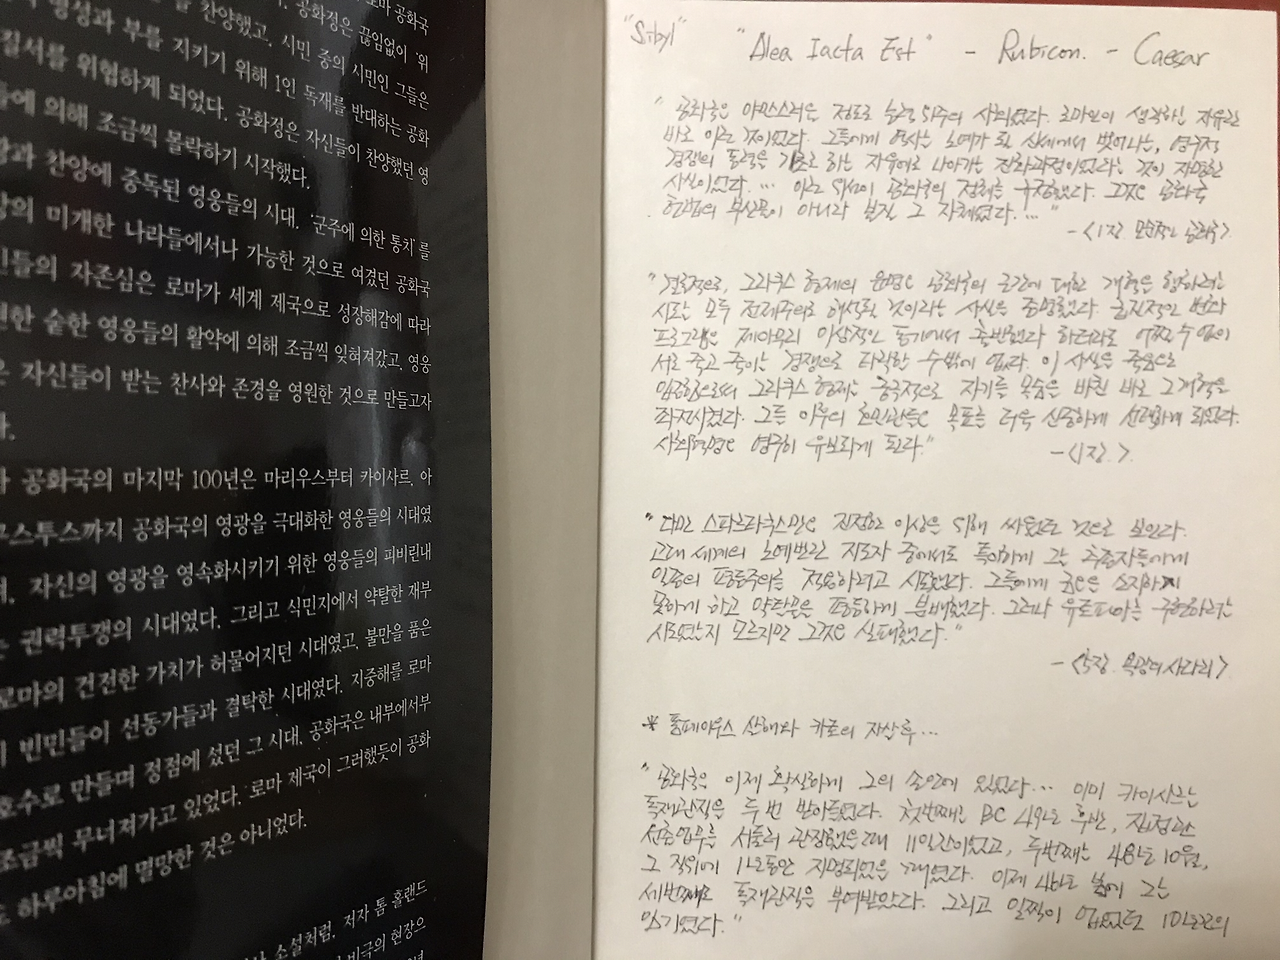 로마 공화국
찬양했고, 공화정은 끊임없이 '위
명성과 부를 지키기 위해 시민 중의 시민인 그들은
질서를 위협하게 되었다. 1인 독재를 반대하는 공화
에 의해 조금씩 몰락하기 시작했다. 공화정은 자신들이 찬양했던 영
과 찬양에 중독된 영웅들의 시대, '군주에 의한 통치'를
의 미개한 나라들에서나 가능한 것으로 여겼던 공화국
민들의 자존심은 로마가 세계 제국으로 성장해감에 따라
한 숱한 영웅들의 활약에 의해 조금씩 잊혀져갔고, 영웅
은 자신들이 받는 찬사와 존경을 영원한 것으로 만들고자
다.
공화국의 마지막 100년은 마리우스부터 카이사르, 아
구스투스까지 공화국의 영광을 극대화한 영웅들의 시대였
며, 자신의 영광을 영속화시키기 위한 영웅들의 피비린내
는 권력투쟁의 시대였다. 그리고 식민지에서 약탈한 재부
로마의 건전한 가치가 허물어지던 시대였고, 불만을 품은
빈민들이 선동가들과 결탁한 시대였다. 지중해를 로마
호수로 만들며 정점에 섰던 그 시대, 공화국은 내부에서부
조금씩 무너져가고 있었다. 로마 제국이 그러했듯이 공화
하루아침에 멸망한 것은 아니었다.
소설처럼, 저자 톰 홀랜드
비극의 현장으
"Sibyl"
"Alea Iacta Est" - Rubicon. - Caesar
"공화국은 야만스러운 정도로 능력 위주의 사회였다. 로마인이 생각하는 자유란
바로 이런 것이었다. 그들에게 역사는 노예가 된 상태에서 벗어나는, 영구적
경쟁의 동력을 기초로 하는 자유에로 나아가는 진화과정이었다라는 것이 자명한
사실이었다. … 이런 위선이 공화국의 정체를 규정했다. 그것은 공화국
헌법의 부산물이 아니라 본질 그 자체였다. …"
- <1장. 모순적인 공화국>
"결론적으로, 그라쿠스 형제의 운명은 공화국의 근간에 대한 개혁을 행하려는
시도는 모두 전제주의로 해석될 것이라는 사실을 증명했다. 급진적인 변화
프로그램은 제아무리 이상적인 동기에서 출발했다 하더라도 어쩔 수 없이
서로 죽고 죽이는 경쟁으로 타락할 수밖에 없다. 이 사실을 죽음으로
입증함으로써 그라쿠스 형제는 궁극적으로 자기들 목숨을 바친 바로 그 개혁을
좌절시켰다. 그들 이후의 호민관들은 목표를 더욱 신중하게 선택하게 되었다.
사회혁명은 영구히 유보하게 된다."
- <1장.>
"다만 스파르타쿠스만은 진정한 이상을 위해 싸웠던 것으로 보인다.
고대 세계의 노예반란 지도자 중에서도 특이하게 그는 추종자들에게
일종의 평등주의를 적용하려고 시도했다. 그들에게 금은을 소지하지
못하게 하고 약탈품은 평등하게 분배했다. 그러나 유토피아를 구현하려는
시도였는지 모르지만 그것은 실패했다."
- <5장. 목광의 사다리>
* 폼페이우스 살해와 카토의 자살후…
"공화국은 이제 확실하게 그의 손안에 있었다… 이미 카이사르는
독재관직을 두 번 받아들였다. 첫번째는 BC 49년 후반, 집정관
선출업무를 서둘러 관장했을 때 11일간이었고, 두번째는 48년 10월,
그 직위에 1년동안 지명되었을 때였다. 이제 46년 봄에 그는
세번째로 독재관직을 부여받았다. 그리고 일찍이 없었던 10년간의
임기였다."